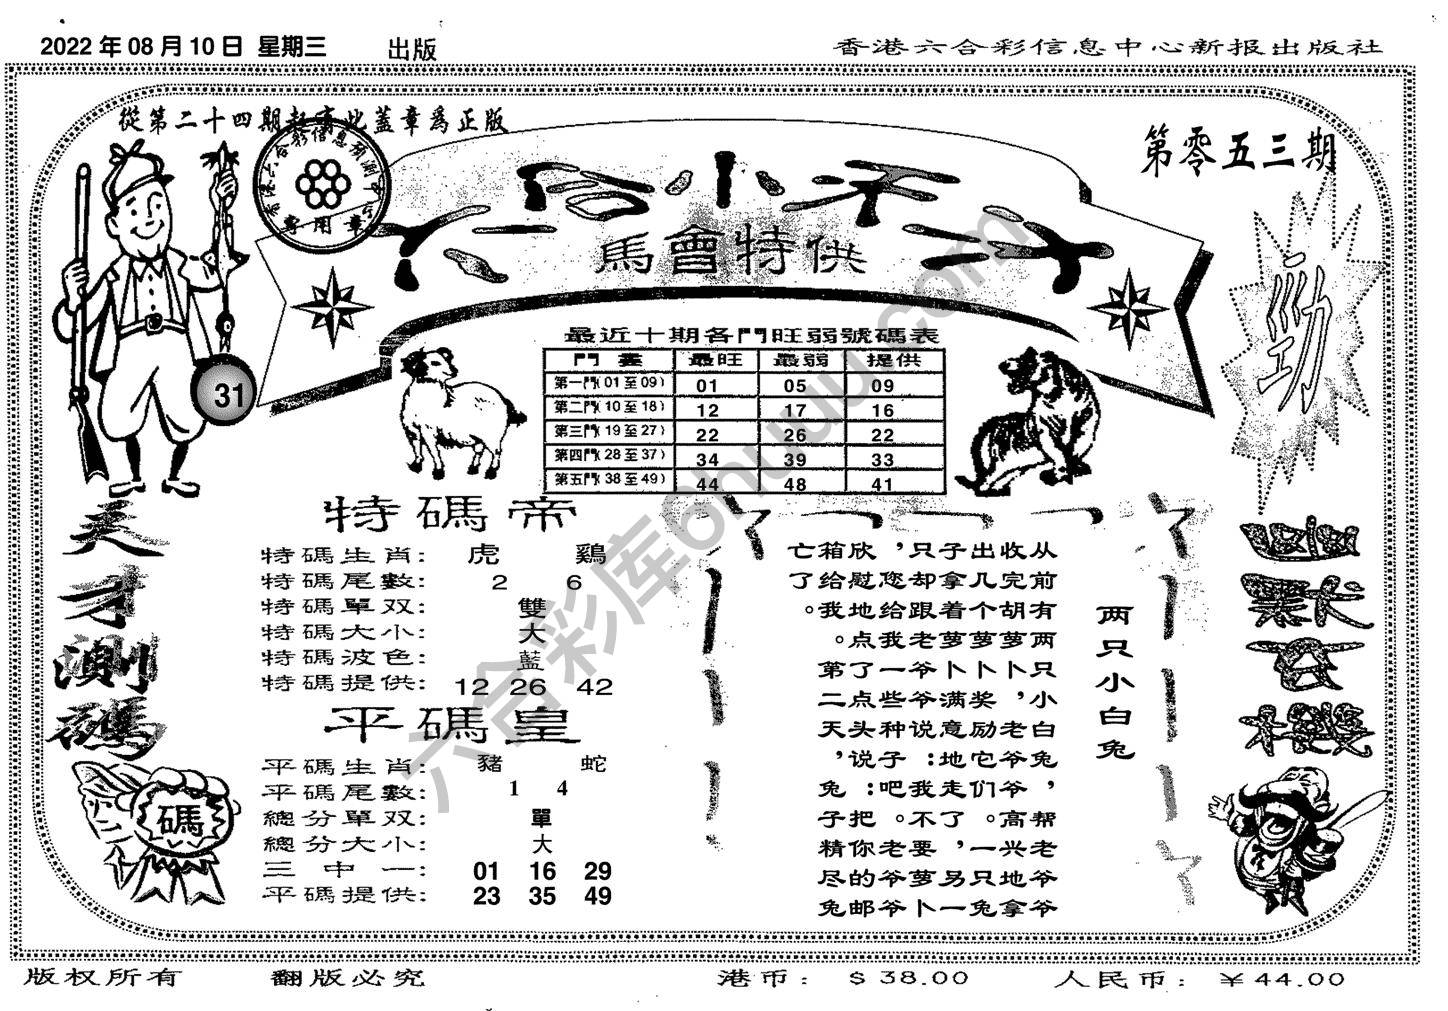 2022年08月10日 星期三 出版
香港六合彩信息中心新报出版社
從第二十四期起有此蓋章為正版
第零五三期
馬會特供
劲
31
最近十期各門旺弱號碼表
最旺 最弱 提供
第一門(01至09) 01 05 09
第二門(10至18) 12 17 16
第三門(19至27) 22 26 22
第四門(28至37) 34 39 33
第五門(38至49) 44 48 41
天才测碼
碼
特碼帝
特碼生肖: 虎 鷄
特碼尾數: 2 6
特碼單双: 雙
特碼大小: 大
特碼波色: 藍
特碼提供: 12 26 42
平碼皇
平碼生肖: 豬 蛇
平碼尾數: 1 4
總分單双: 單
總分大小: 大
三中一: 01 16 29
平碼提供: 23 35 49
两只小白兔
从前有两只小白兔，帮老爷爷
收完胡萝卜，老爷爷高兴地拿
出几个萝卜奖励它们。一只兔
子拿着萝卜满意地走了，另一
只却跟老爷爷说：我不要萝卜
，您给我一些种子吧。老爷爷
欣慰地点了点头说：把你的邮
箱给我。第二天，兔子精尽兔
亡了。
版权所有 翻版必究 港币: $38.00 人民币: ¥44.00